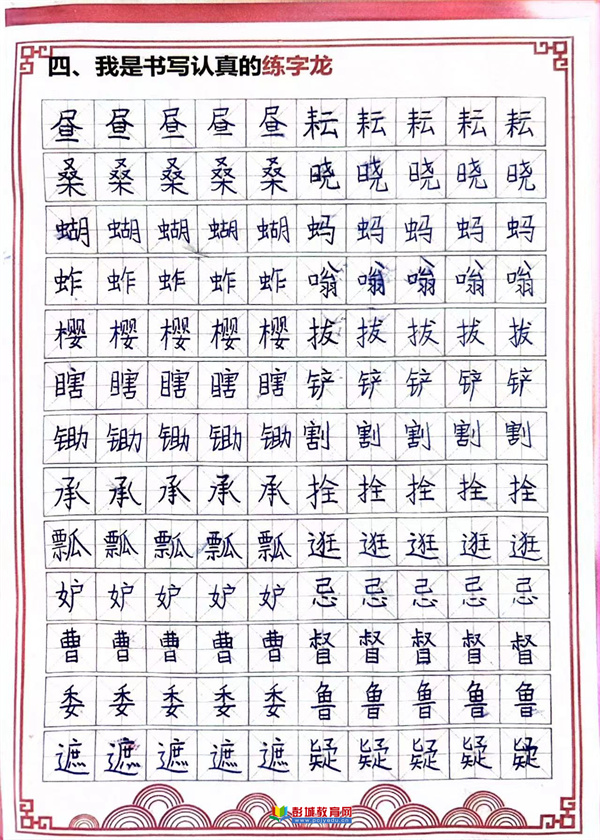 四、我是书写认真的练字龙
昼昼昼昼昼耘耘耘耘耘
桑桑桑桑桑晓晓晓晓晓
蝴蝴蝴蝴蝴蚂蚂蚂蚂蚂
蚱蚱蚱蚱蚱嗡嗡嗡嗡嗡
樱樱樱樱樱拔拔拔拔拔
瞎瞎瞎瞎瞎铲铲铲铲铲
锄锄锄锄锄割割割割割
承承承承承拴拴拴拴拴
瓢瓢瓢瓢瓢逛逛逛逛逛
妒妒妒妒妒忌忌忌忌忌
曹曹曹曹曹督督督督督
委委委委委鲁鲁鲁鲁鲁
遮遮遮遮遮疑疑疑疑疑
彭城教育网
www.pcjyedu.cn